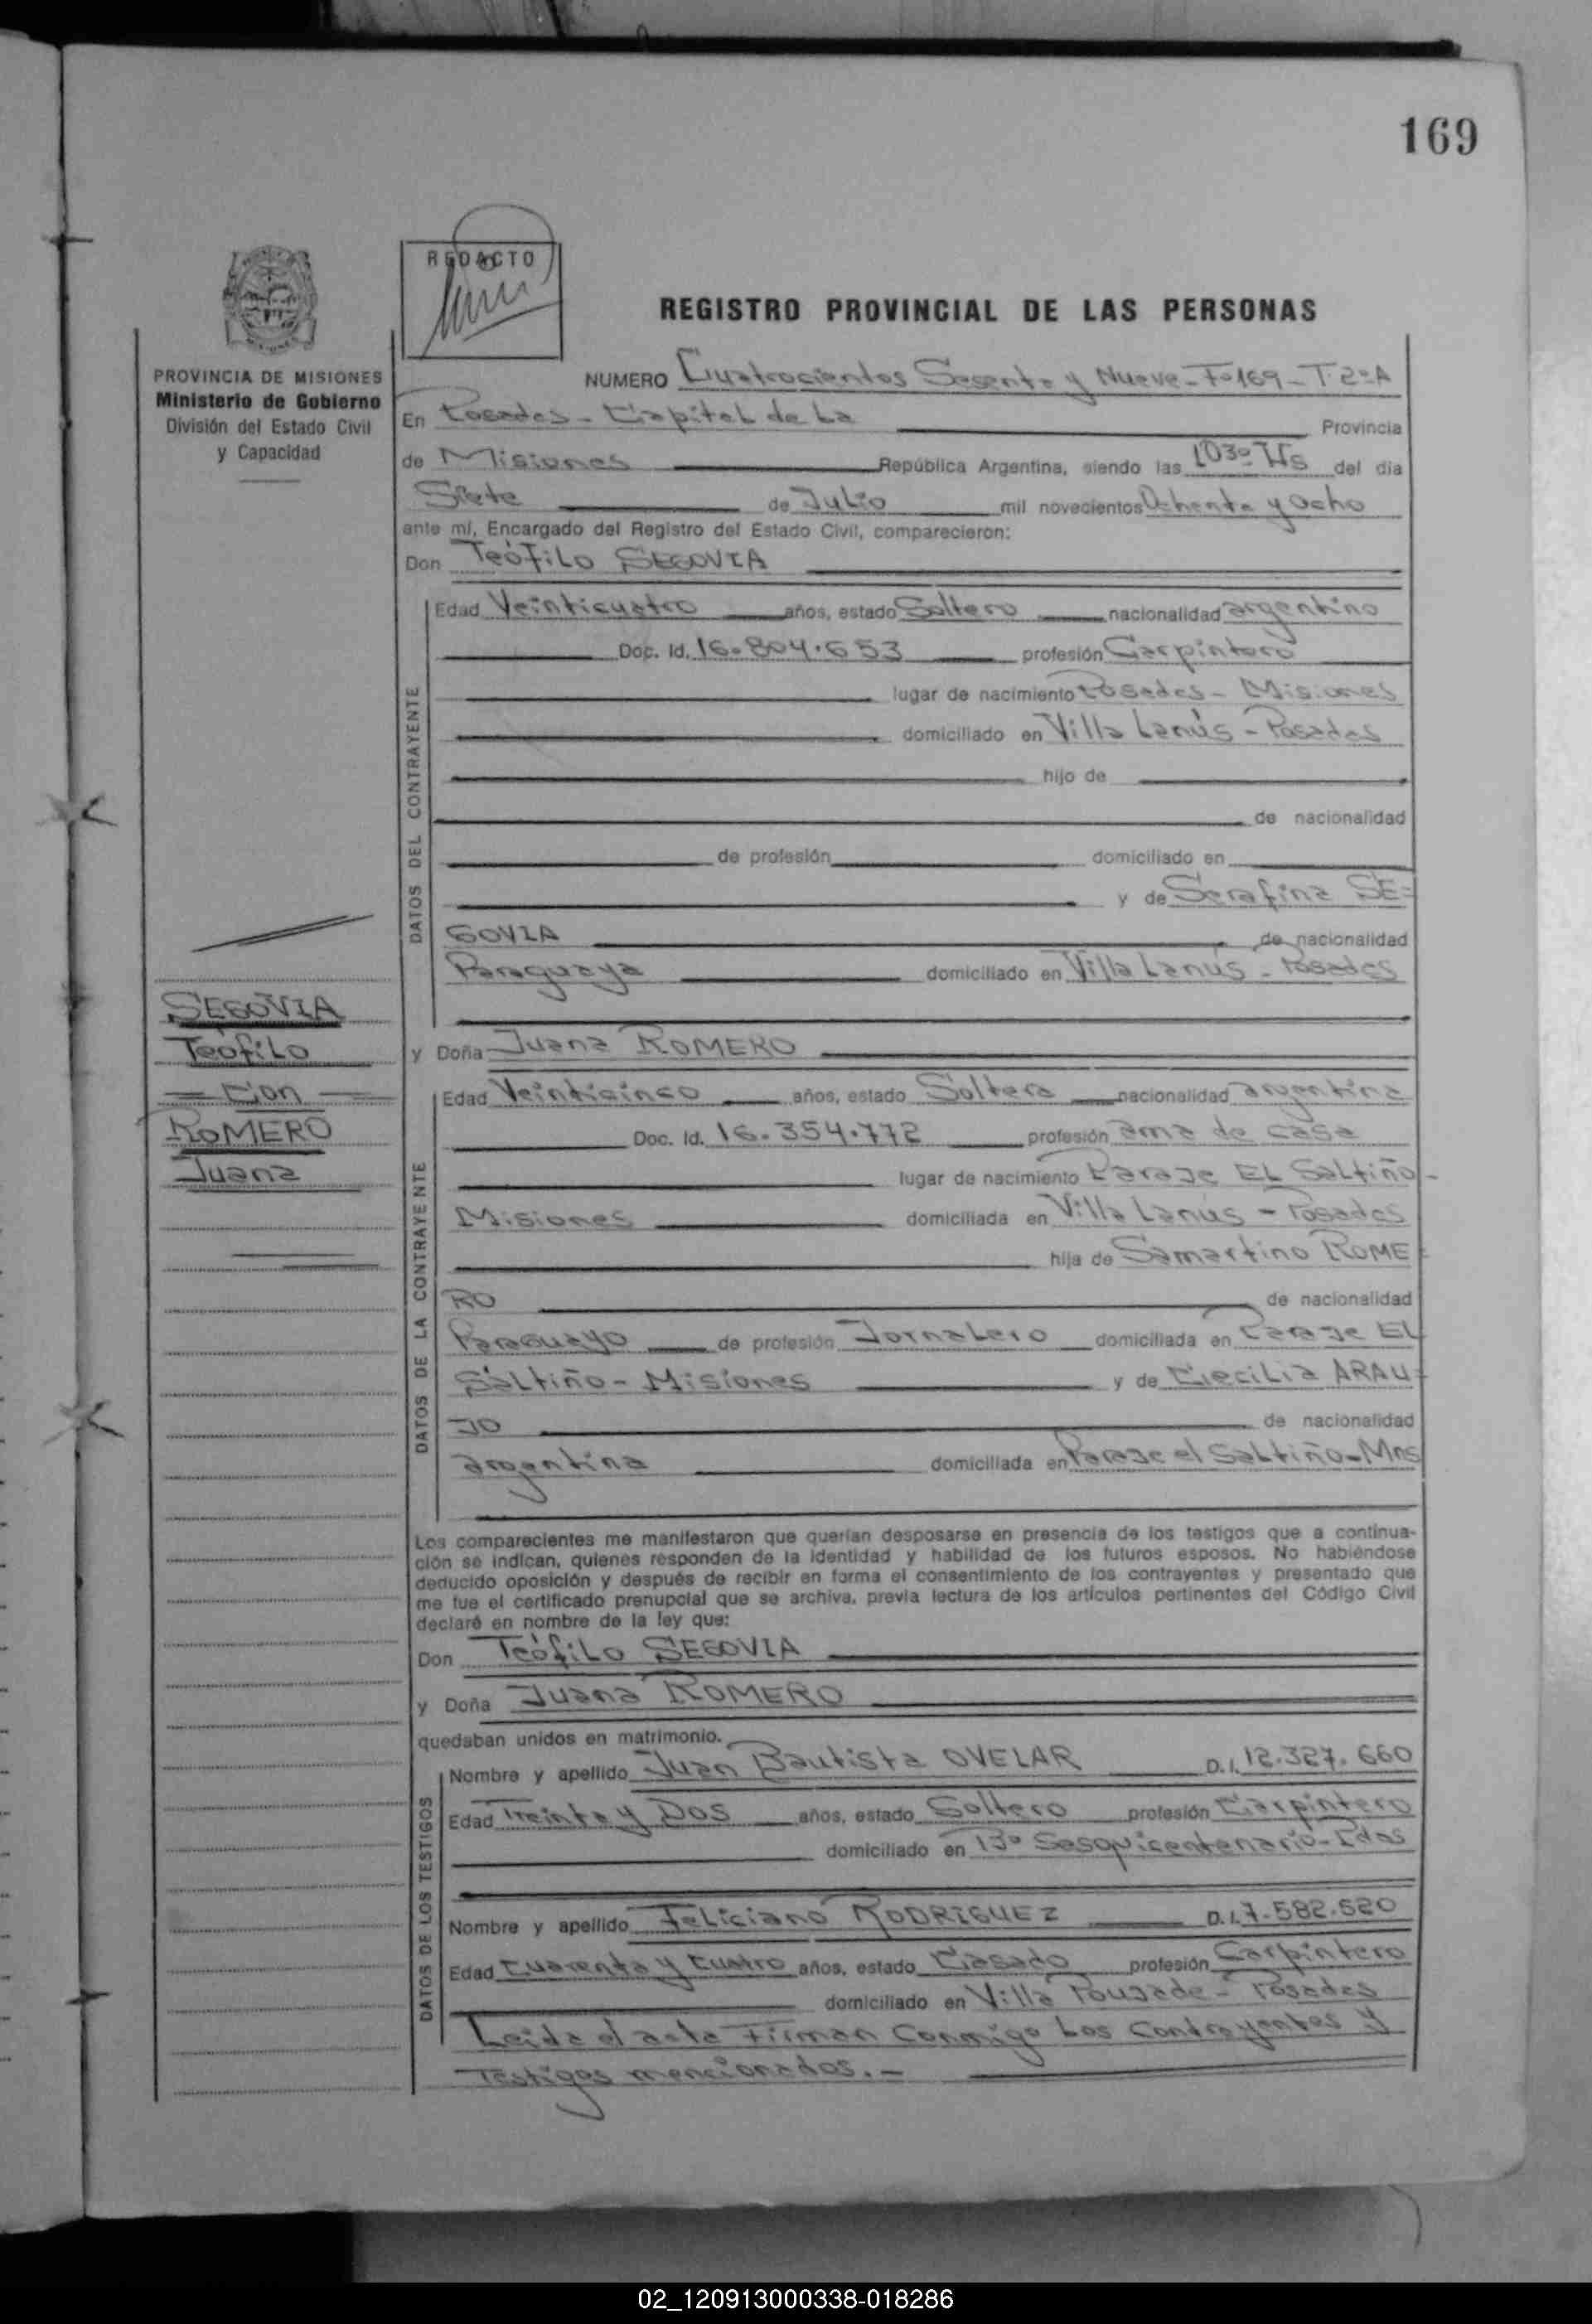 169
REDACTO
REGISTRO PROVINCIAL DE LAS PERSONAS
PROVINCIA DE MISIONES
Ministerio de Gobierno
División del Estado Civil
y Capacidad
NUMERO Cuatrocientos Sesenta y Nueve - Fº 169 - T. 2º A
En Posadas - Capital de La Provincia
de Misiones República Argentina, siendo las 1030 Hs del día
Siete de Julio mil novecientos Ochenta y Ocho
ante mí, Encargado del Registro del Estado Civil, comparecieron:
Don Teófilo SEGOVIA
DATOS DEL CONTRAYENTE
Edad Veinticuatro años, estado Soltero nacionalidad argentino
Doc. Id. 16.804.653 profesión Carpintero
lugar de nacimiento Posadas - Misiones
domiciliado en Villa Lanús - Posadas
hijo de
de nacionalidad
de profesión domiciliado en
y de Serafina SE=
GOVIA de nacionalidad
Paraguaya domiciliado en Villa Lanús - Posadas
SEGOVIA
Teófilo
Con
ROMERO
Juana
y Doña Juana ROMERO
DATOS DE LA CONTRAYENTE
Edad Veinticinco años, estado Soltera nacionalidad argentina
Doc. Id. 16.354.772 profesión ama de casa
lugar de nacimiento Paraje EL Saltiño -
Misiones domiciliada en Villa Lanús - Posadas
hija de Samartino ROME=
RO de nacionalidad
Paraguayo de profesión Jornalero domiciliada en Paraje EL
Saltiño - Misiones y de Cecilia ARAU=
JO de nacionalidad
argentina domiciliada en Paraje el Saltiño - Mnes
Los comparecientes me manifestaron que querían desposarse en presencia de los testigos que a continua-
ción se indican, quienes responden de la identidad y habilidad de los futuros esposos. No habiéndose
deducido oposición y después de recibir en forma el consentimiento de los contrayentes y presentado que
me fue el certificado prenupcial que se archiva, previa lectura de los artículos pertinentes del Código Civil
declaré en nombre de la ley que:
Don Teófilo SEGOVIA
y Doña Juana ROMERO
quedaban unidos en matrimonio.
DATOS DE LOS TESTIGOS
Nombre y apellido Juan Bautista OVELAR D.I. 12.327.660
Edad Treinta y Dos años, estado Soltero profesión Carpintero
domiciliado en Bº Sesquicentenario - Pdas
Nombre y apellido Feliciano RODRIGUEZ D.I. 7.582.520
Edad Cuarenta y Cuatro años, estado Casado profesión Carpintero
domiciliado en Villa Poujade - Posadas
Leida el acta Firman Conmigo Los Contrayentes y
Testigos mencionados. -
02_120913000338-018286